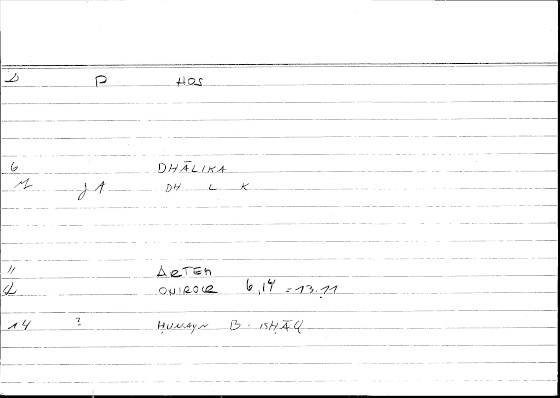 D P HOS
6 DHĀLIKA
J A DH L K
11 ARTEM
d ONIROCR 6,14 = 13.11
14 ? ḤUNAYN B. ISḤĀQ